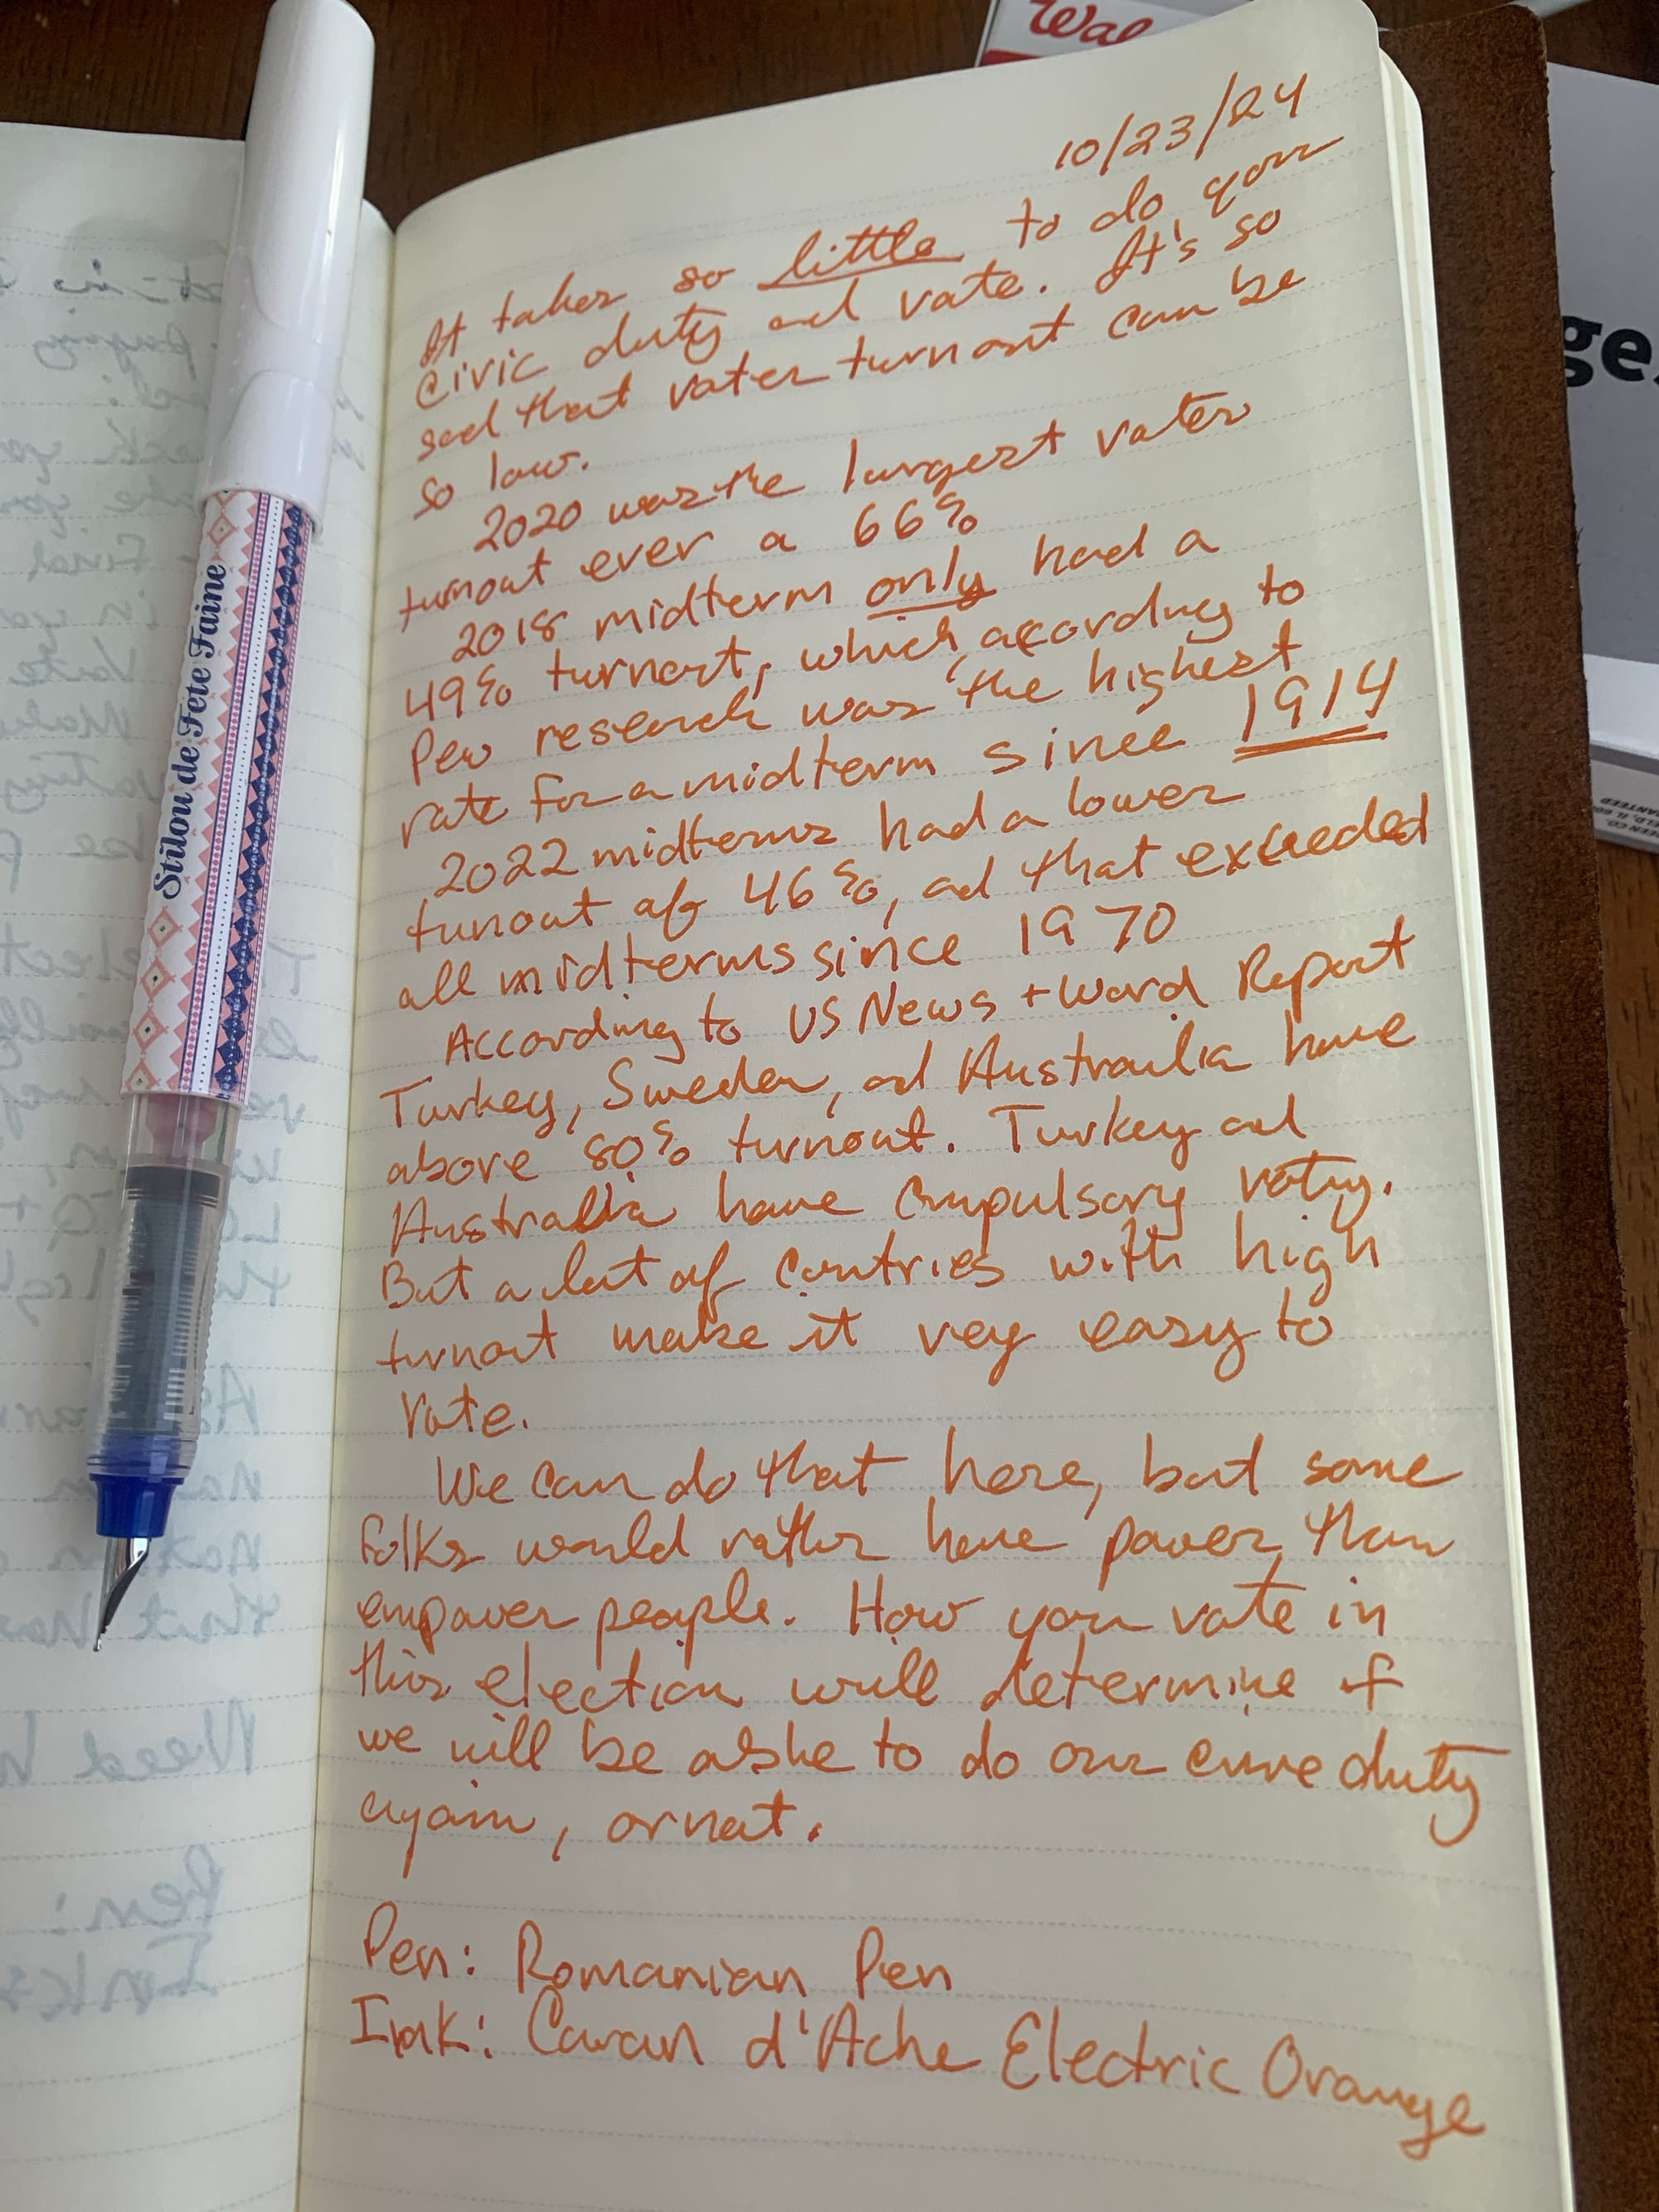 Wal
10/23/24
It takes so little to do your
civic duty and vote. It's so
sad that voter turnout can be
so low.
2020 was the largest voter
turnout ever a 66%
2018 midterm only had a
49% turnout, which, according to
Pew research was the highest
rate for a midterm since 1914
2022 midterms had a lower
tunout of 46%, ad that exceeded
all midterms since 1970
According to US News + Word Report
Turkey, Sweden, ad Austrailia have
above 80% turnout. Turkey ad
Australia have compulsory voting.
But a lot of contries with high
turnout make it vey easy to
vote.
We can do that here, but some
folks would rather have power than
empower people. How you vote in
this election will determine if
we will be able to do our civic duty
again, or not.
Pen: Romanian Pen
Ink: Caran d'Ache Electric Orange
Stilou de Fete Faine
ge